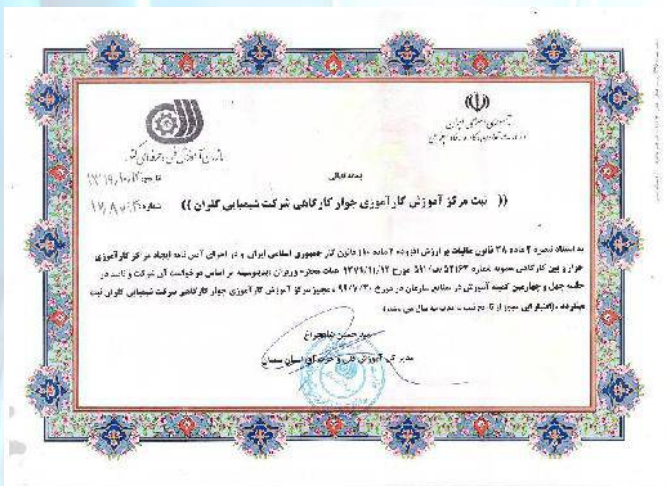 جمهوری اسلامی ایران
وزارت تعاون، کار و رفاه اجتماعی
سازمان آموزش فنی و حرفه‌ای کشور
بسمه تعالی
تاریخ:
شماره:
(( ثبت مرکز آموزش کارآموزی جوار کارگاهی شرکت شیمیایی کلران ))
به استناد تبصره ۲ ماده ۳۸ قانون مالیات بر ارزش افزوده ۲ ماده ۱۱۰ قانون کار جمهوری اسلامی ایران و در اجرای آئین نامه ایجاد مراکز کارآموزی
جوار و بین کارگاهی مصوبه شماره مورخ ۱۳۷۹/۱۱/۱۲ هیات محترم وزیران بدینوسیله بر اساس درخواست آن شرکت و تائید در
جلسه چهل و چهارمین کمیته آموزش در صنایع سازمان در مورخ ۹۹/۷/۳۰ ، مجوز مرکز آموزش کارآموزی جوار کارگاهی شرکت شیمیایی کلران ثبت
میگردد . (اعتبار این مجوز از تاریخ ثبت به مدت سه سال می باشد)
سید حسین شاهچراغ
مدیر کل آموزش فنی و حرفه ای استان سمنان